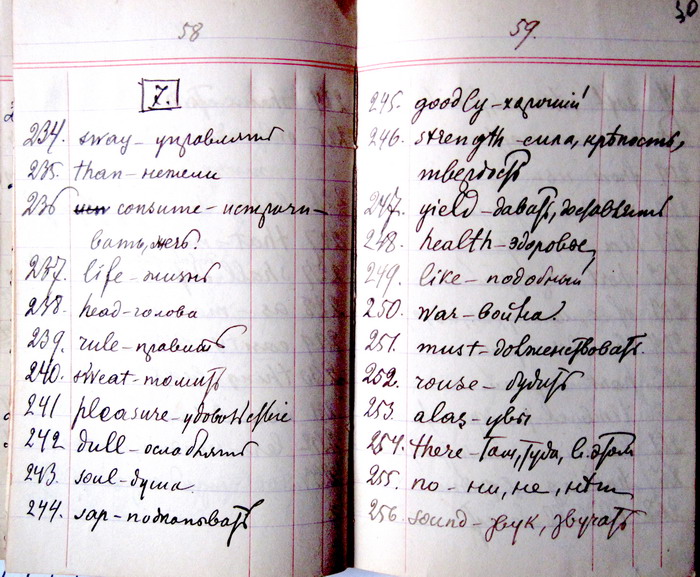 58
7.
234. sway – управлять
235. than – нежели
236 consume – истрачи-
вать, жечь.
237. life – жизнь
238. head – голова
239. rule – править
240. sweat – томить
241. pleasure – удовольствіе
242 dull – ослаблять
243. soul – душа.
244. sap – подкапывать
30
59.
245. goodly – хорошій
246. strength – сила, крѣпость,
твердость
247. yield – давать, доставлять
248. health – здоровье
249. like – подобный
250. war – война.
251. must – долженствовать.
252. rouse – будить
253. alas – увы
254. there – там, туда, в. этом
255. no – ни, не, нѣт
256. sound – звук, звучать